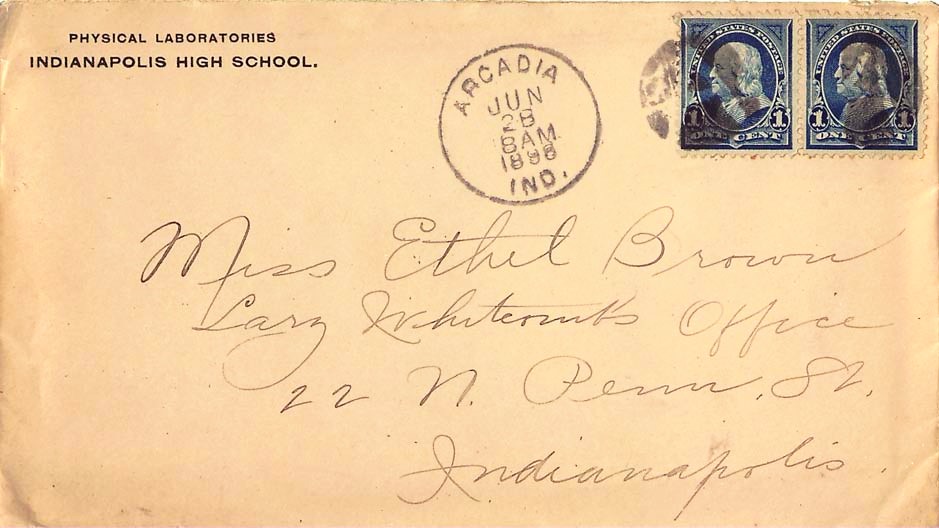 PHYSICAL LABORATORIES
INDIANAPOLIS HIGH SCHOOL.
ARCADIA
JUN
28
8 AM
1898
IND.
UNITED STATES POSTAGE
1 1
ONE CENT
UNITED STATES POSTAGE
1 1
ONE CENT
Miss Ethel Brown
Larz Whitcomb's Office
22 N. Penn. St.
Indianapolis.